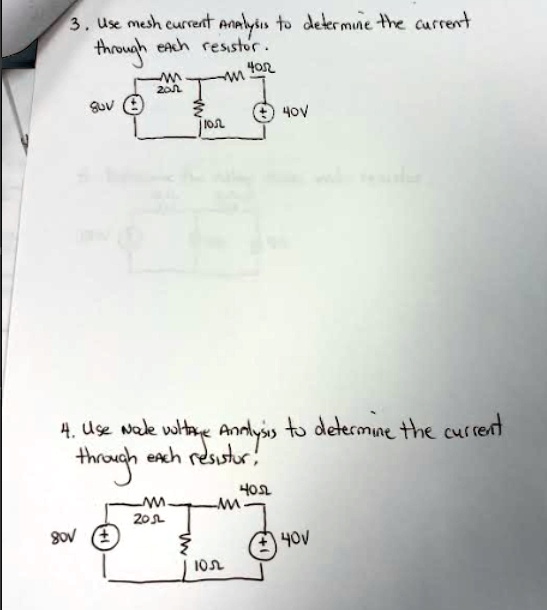 3. Use mesh current Analysis to determine the current
through each resistor.
40Ω
20Ω
80V
±
+
40V
10Ω
4. Use Node voltage Analysis to determine the current
through each resistor.
40Ω
20Ω
80V
±
±
40V
10Ω